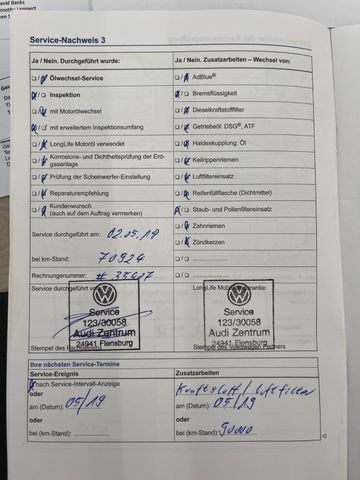 David Banks
Service-Nachweis 3
Ja / Nein. Durchgeführt wurde:
Ja / Nein. Zusatzarbeiten – Wechsel von:
Ölwechsel-Service
AdBlue®
Inspektion
Bremsflüssigkeit
mit Motorölwechsel
Dieselkraftstofffilter
mit erweitertem Inspektionsumfang
Getriebeöl: DSG®, ATF
LongLife Motoröl verwendet
Haldexkupplung: Öl
Korrosions- und Dichtheitsprüfung der Erd-
gasanlage
Keilrippenriemen
Prüfung der Scheinwerfer-Einstellung
Luftfiltereinsatz
Reparaturempfehlung
Reifenfüllflasche (Dichtmittel)
Kundenwunsch
(auch auf dem Auftrag vermerken)
Staub- und Pollenfiltereinsatz
Service durchgeführt am: 02.05.19
Zahnriemen
Zündkerzen
bei km-Stand: 70924
Rechnungsnummer: # 35487
Service durchgeführt
LongLife Motoröl garantie:
Service
123/30058
Audi Zentrum
24941 Flensburg
Service
123/30058
Audi Zentrum
24941 Flensburg
Stempel des
Stempel des Volkswagen Partners
Ihre nächsten Service-Termine
Service-Ereignis
Zusatzarbeiten
nach Service-Intervall-Anzeige
Kraftstoff / Luftfilter
oder
am (Datum): 05/19
am (Datum): 05/19
oder
oder
bei (km-Stand):
bei (km-Stand): 90000